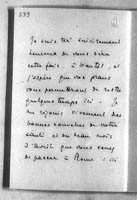 293
Je suis très sincèrement
heureux de vous dire
cette fois, à bientôt, et
j'espère que vos
vous permettront de rester
quelque temps ici. Je
me réjouis vivement des
bonnes nouvelles de votre
santé et du beau mois
d'avril que vous venez
de passer à Rome